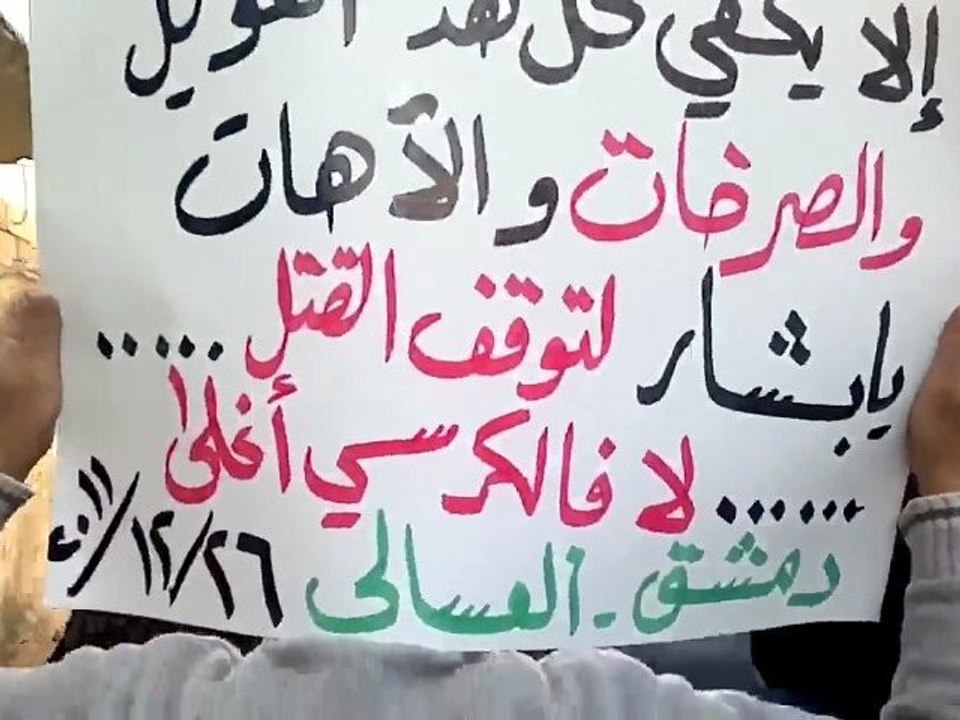 إلا يكفي كل هذ العويل
والصرخات والأهات
يابشار لتوقف القتل.....
......لا فالكرسي أغلى
دمشق - العسالي ٢٦/١٢/٢٠١١